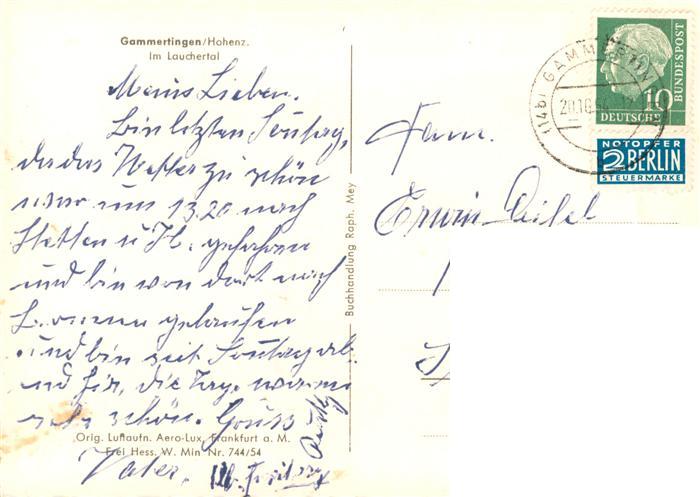 Gammertingen/Hohenz.
Im Lauchertal
Meine Lieben.
Bin letzten Sonntag,
da das Wetter zu schön
war um 13.20 nach
Stetten u H. gefahren
und bin von dort nach
gelaufen
und bin seit Sonntag
hier, die Tage waren
sehr schön. Gruss
Vater.
Orig. Luftaufn. Aero-Lux, Frankfurt a. M.
Frei Hess. W. Min Nr. 744/54
Buchhandlung Raph. Mey
Fam.
Erwin
GAMM
20.10.54
10
DEUTSCHE
BUNDESPOST
NOTOPFER
2 BERLIN
STEUERMARKE